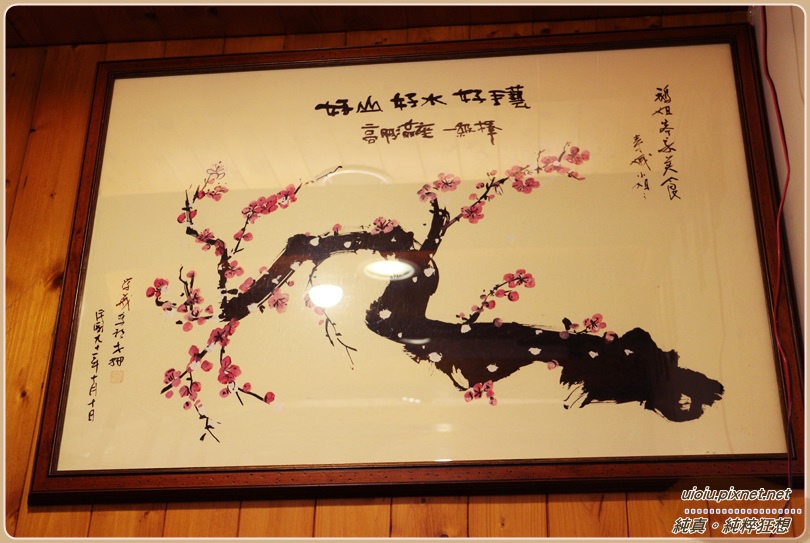 好山 好水 好手藝
高朋滿座 一級棒
福姐客家美食
秀娥小姐
民國九十一年十月十日
uioiu.pixnet.net
純真。純粹狂想